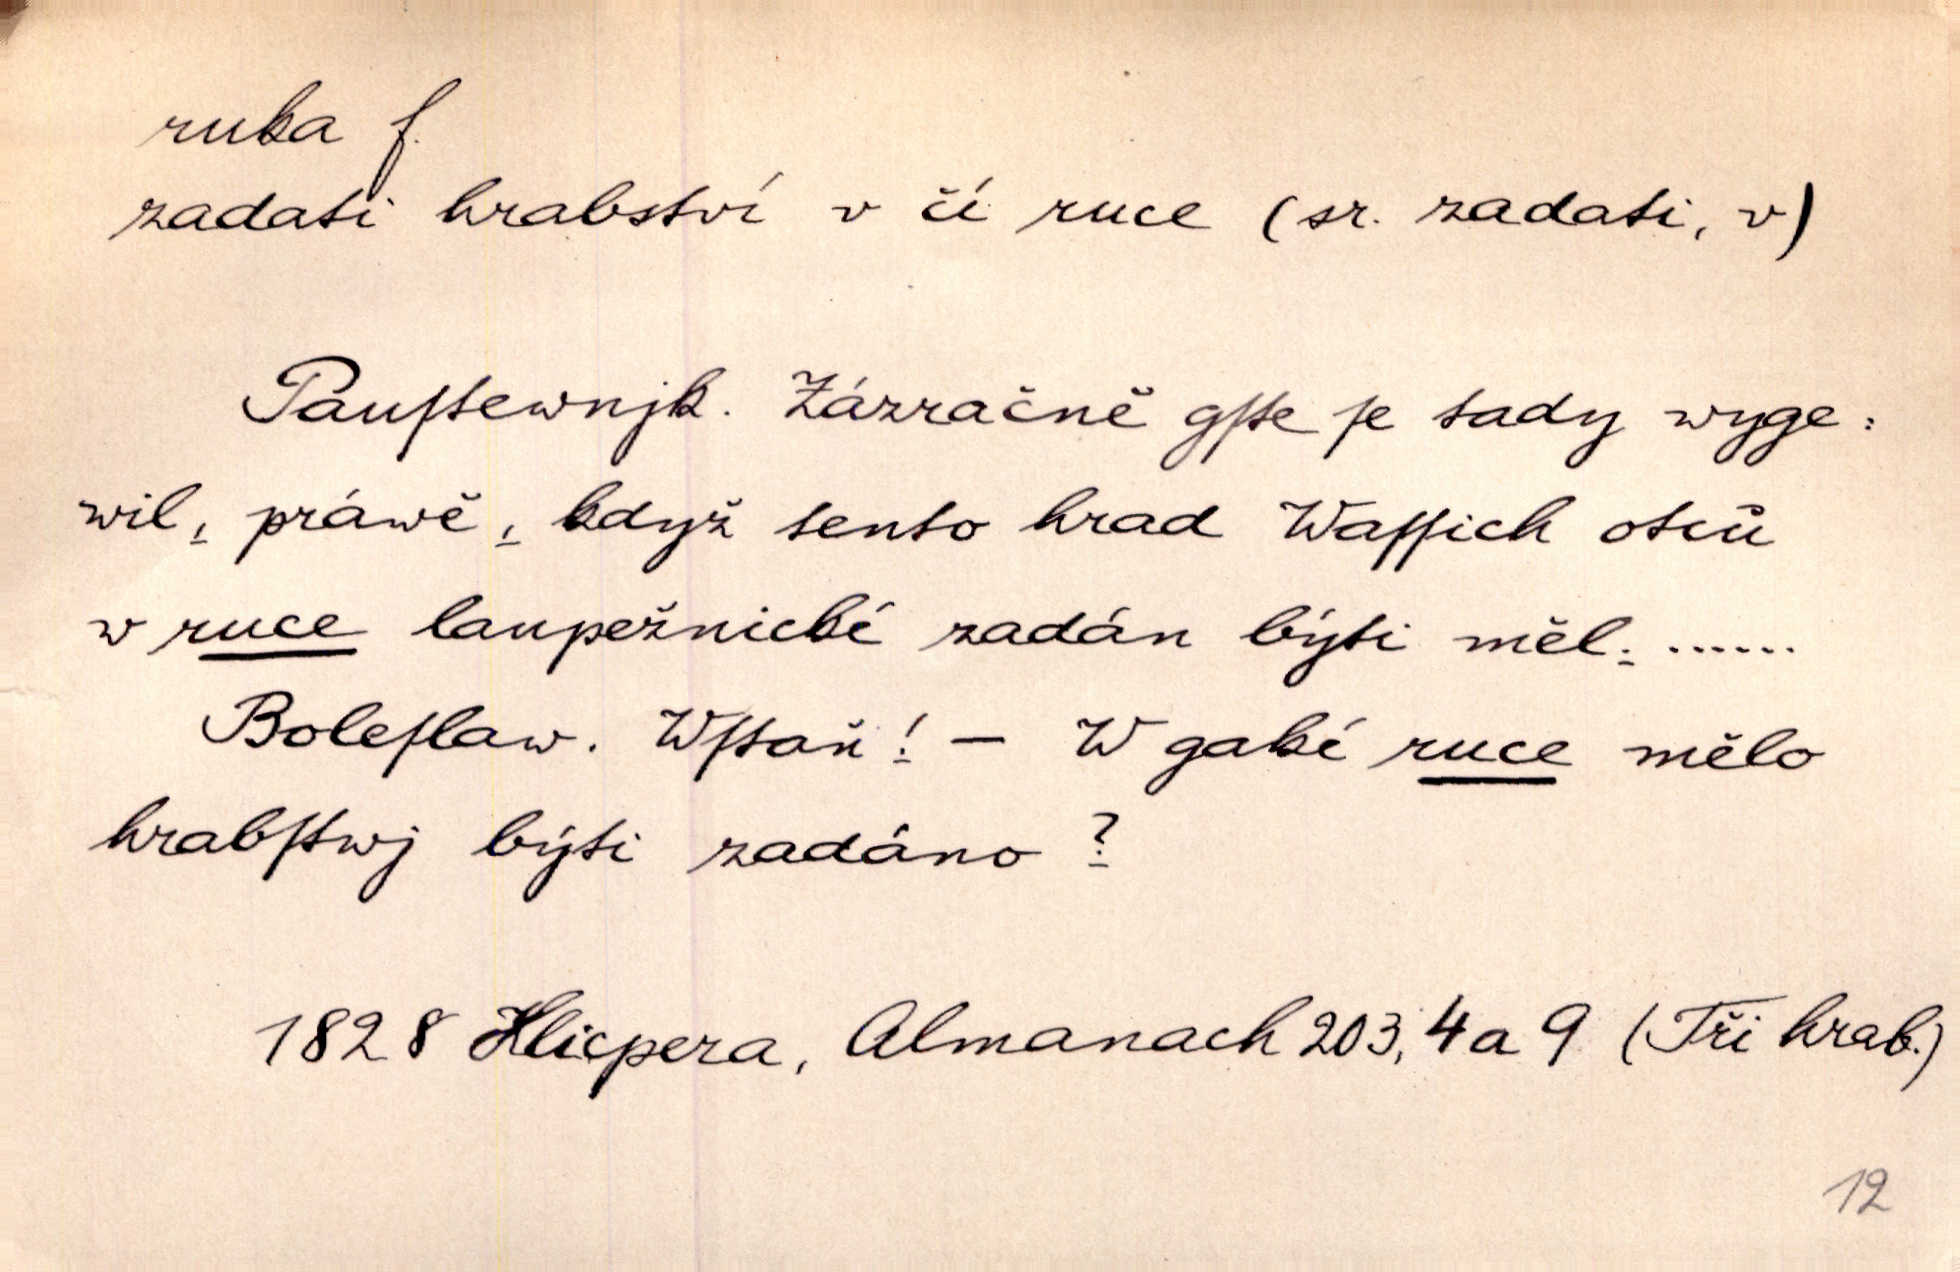 ruka f.
zadati hrabství v čí ruce (sr. zadati, v)
Pauſtewnjk. Zázračně gſte ſe tady wyge:
wil, práwě, když tento hrad Waſſich otců
w ruce laupežnické zadán býti měl. ......
Boleſlaw. Wſtaň! — W gaké ruce mělo
hrabſtwj býti zadáno?
1828 Klicpera, Almanach 203, 4 a 9 (Tři hrab.)
12